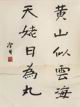 黄山似雲海
天姥日為丸